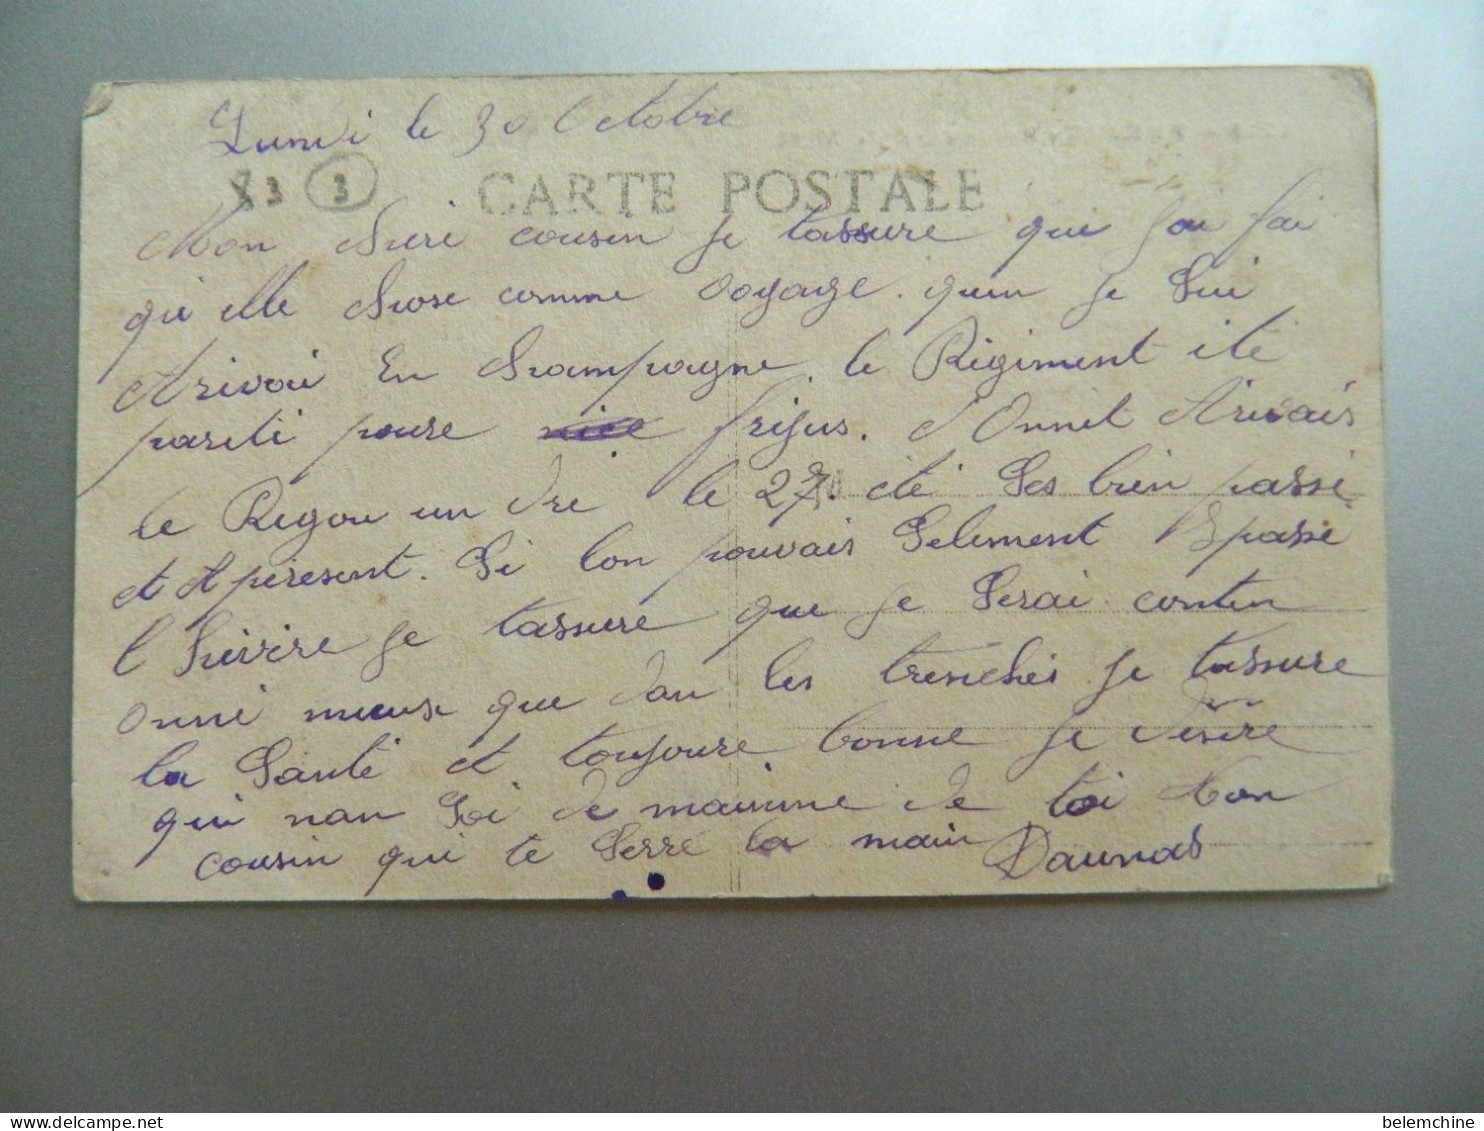 Lundi le 30 Octobre
83 3 CARTE POSTALE
Mon cheri cousin je tassure que jou fai
qu elle chose comme voyage. quan je Sui
Arivai En Champagne. le Régiment ité
pareti poure nice frijus. d Onnit Arivais
le Rigou un dre le 27. été Ses bien passé
et A pèresent. Si lon pouvais Selement
l hivire je tassure que je Serai conten
onne mieux que dan les trenchés je tassure
la Santé et toujoure bonne je désire
qui nan Soi de mainme de toi Mon
cousin qui te Serre la main Daunas
belemchine